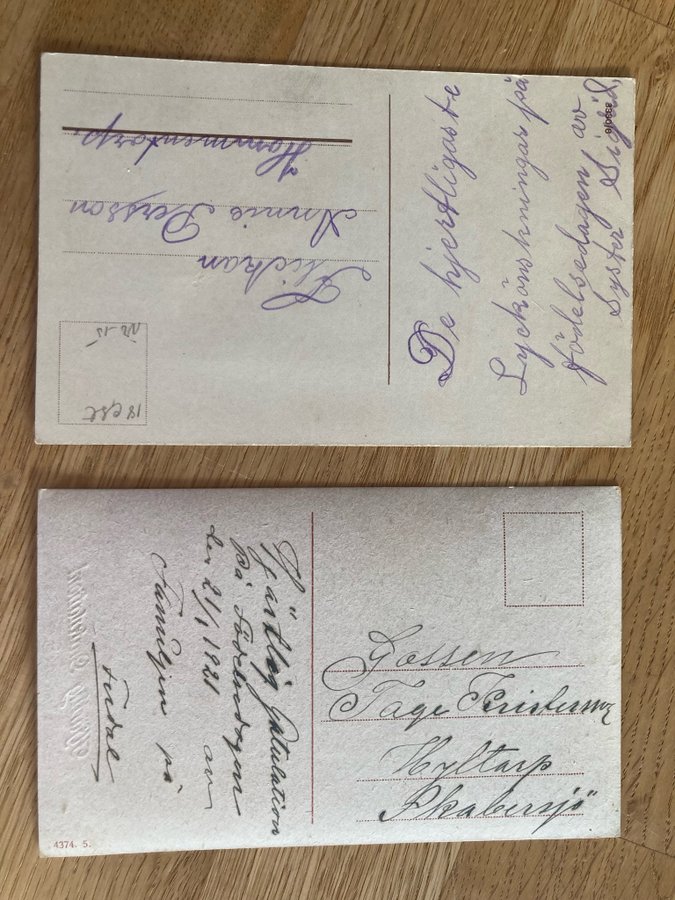 De hjertligaste
Lyckönskningar på
födelsedagen av
Syster Sigrid.
83906
Flickan
Annie Persson
Hommentorp.
Hjärtlig Gratulation
på Födelsedagen
den 21/1 1921 av
Familjen på
Fredal
4374. 5.
Gossen
Tage
Hyltarp
Skabersjö